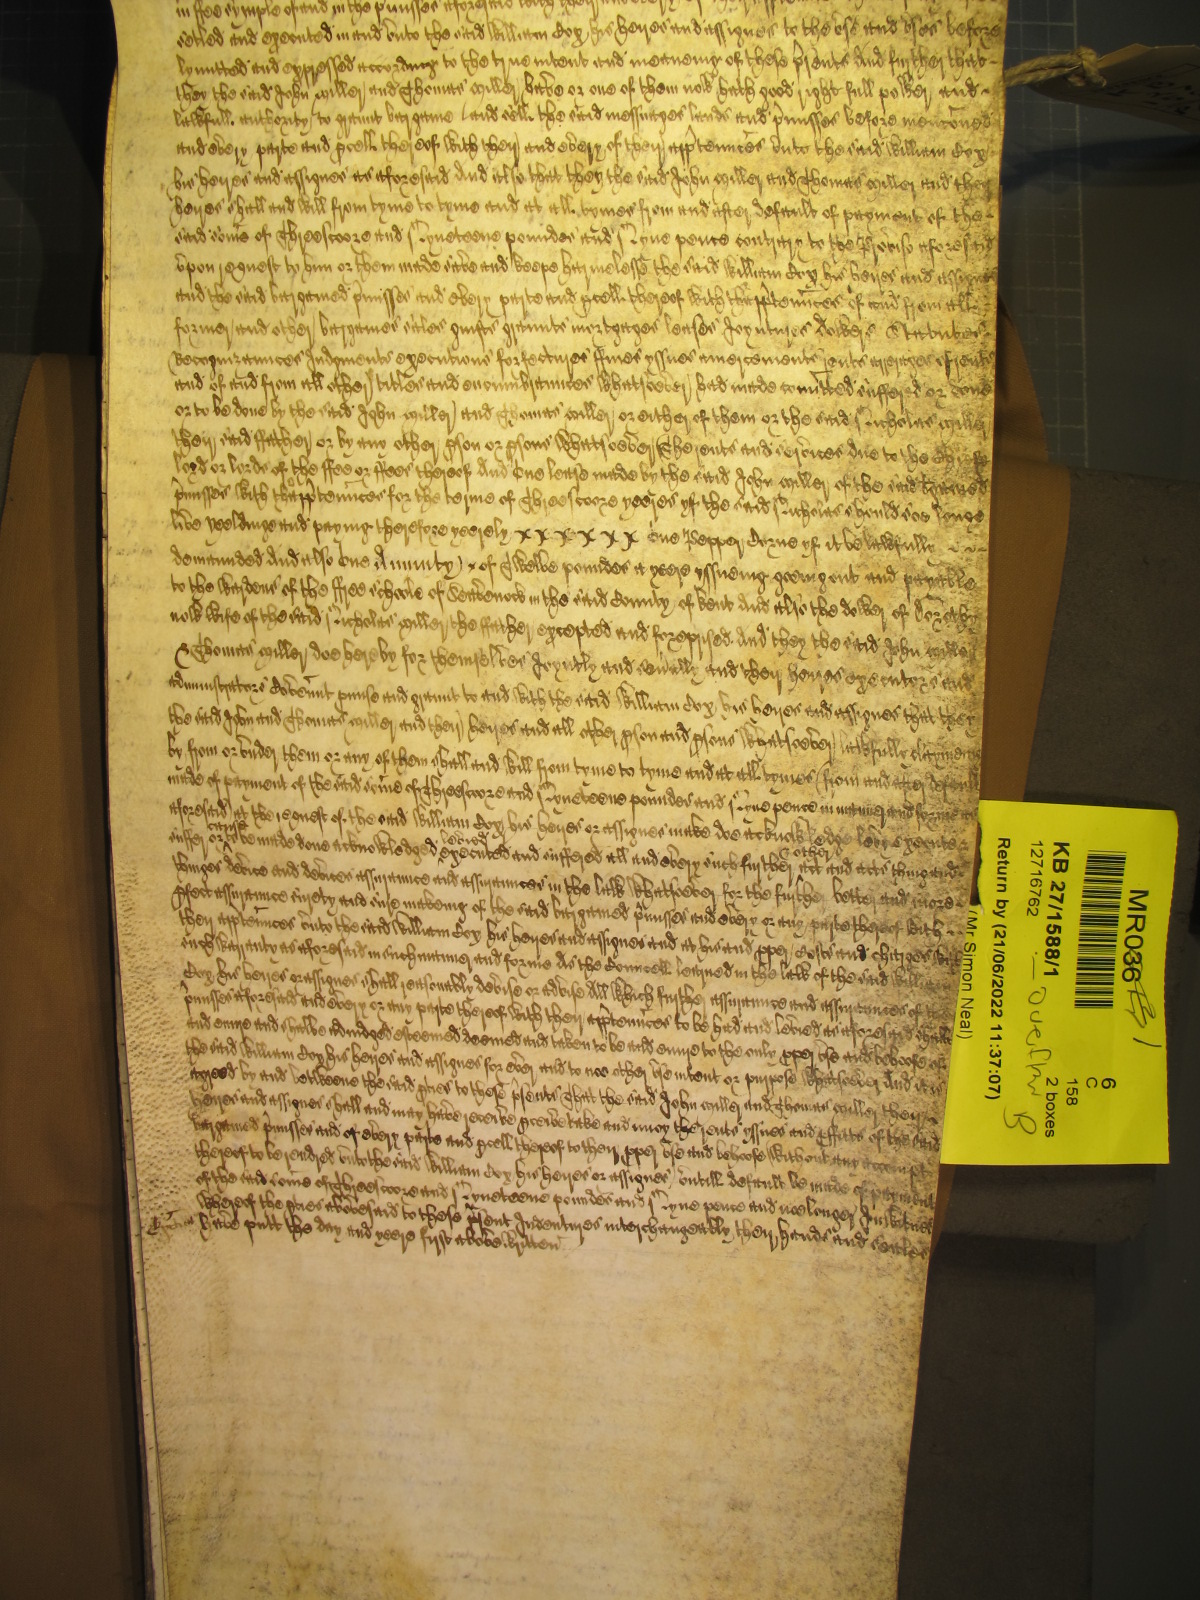 in ffee symple of and in the p̃misses aforesaid with their
setled and executed in and unto the said William Cox his heires and assignes to the use and uses before
lymitted and expressed according to the true intent and meaneing of these p̃sents And further that
they the said John Miller and Thomas Miller have or one of them nowe hath good right full power and
lawfull authority to graunt bargaine and sell the said messuages lands and p̃misses before mencõned
and every parte and pcell thereof with their and every of their appꝰtenñces unto the said William Cox
his heires and assignes as aforesaid And also that they the said John Miller and Thomas Miller and their
heires shall and will from tyme to tyme and at all tymes from and after default of payment of the
said some of Threescoore and Nyneteene poundes and Nyne pence contrary to the Proviso aforesaid
upon request to him or them made save and keepe harmelesse the said William Cox his heires and assignes
and the said bargained p̃misses and every parte and pcell thereof with thapptenñces of and from all
former and other bargaines sales guifts graunts mortgages leases Joyntures dowers Statutes
Recognizaunces Judgments executions forfectures ffines yssues amerciaments rents arerages of rents
and of and from all other titles and encumbraunces whatsoever had made comitted suffered or done
or to be done by the said John Miller and Thomas Miller or either of them or the said Nicholas Miller
their said ffather or by any other pson or psons whatsoever The rents and services due to the Cheife
lord or lords of the ffee or ffees thereof And One lease made by the said John Miller of the said bargained
p̃misses with thapptenñces for the terme of Threescoore yeeres yf the said Nicholas should soe longe
live yeeldinge and paying therefore yeerely x x x x x x One Pepper Corne yf it be lawfully
demaunded And also One Annuity of Twelve poundes a yeere yssueing goeing out and payable
to the Wardens of the ffree schoole of Seavenock in the said County of Kent And also the dower of Dorothy
now wife of the said Nicholas Miller the ffather excepted and foreprised And they the said John Miller
& Thomas Miller doe hereby for themselves Joyntly and sevally and their heires executors and
administrators Covennt pmise and graunt to and with the said William Cox his heires and assignes that they
the said John and Thomas Miller and their heires and all other pson and psons whatsoever lawfully claymeing
by from or under them or any of them shall and will from tyme to tyme and at all tymes from and after default
made of payment of the said some of Threescoore and Nyneteene poundes and Nyne pence in manner and forme as
aforesaid at the request of the said William Cox his heires or assignes make doe acknowledge levy execute
suffer or cause to be made done acknowledged levyed executed and suffered all and every such further & other act and acts thing and
thinges devise and devises assurance and assurances in the lawe whatsoever for the further better and more
pfect assurance surety and sure makeing of the said bargained p̃misses and every or any parte thereof with
their apptennces unto the said William Cox his heires and assignes and at his and pper Costs and charges with
such warranty as aforesaid in such manner and forme As the Councell learned in the lawe of the said William
Cox his heires or assignes shall reasonably devise or advise All which further assurance and assurances of the
p̃misses aforesaid and every or any parte thereof with their apptennces to be had and levied as aforesaid shalbe
and enure and shalbe adiudged esteemed deemed and taken to be and enure to the only pper use and behoofe of
the said William Cox his heires and assignes for ever and to noe other use intent or purpose whatsoever And it is
agreed by and betweene the said pties to these p̃sents That the said John Miller and Thomas Miller their
heires and assignes shall and may have receive pceive take and enioy the rents yssues and pffitts of the said
bargained p̃misses and of every parte and pcell thereof to their pper use and behoofe without any accompt
thereof to be rendred unto the said William Cox his heires or assignes untill default be made of payment
of the said some of Threescoore and Nyneteene poundes and Nyne pence and noe longer In witnes
whereof the pties abovesaid to these p̃sent Indentures interchangeably their hands and seales
have putt the day and yeere first above written
MR036
6
C
158
2 boxes
KB 27/1588/1
12716762
Return by (21/06/2022 11:37:07)
(Mr Simon Neal)